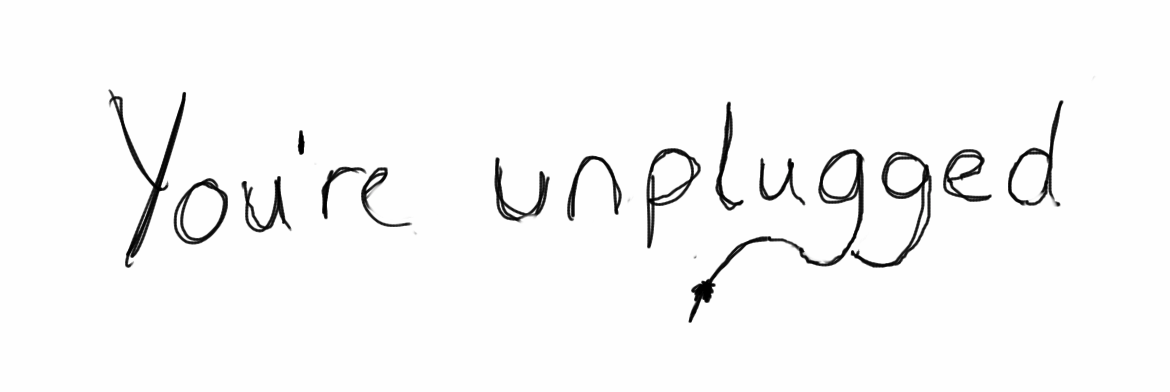 You're unplugged